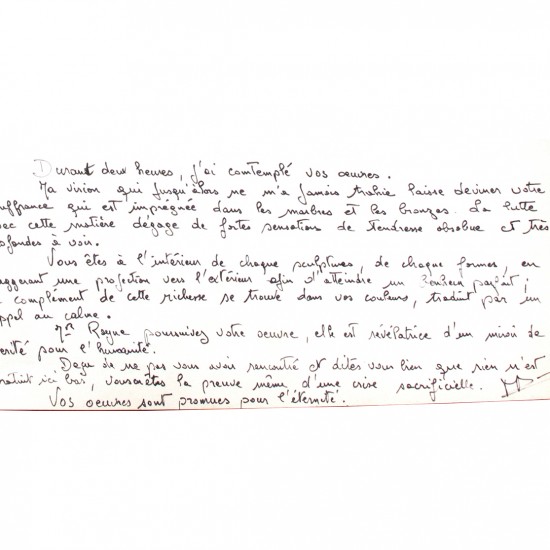 Durant deux heures, j'ai comtemplé vos oeuvres.
Ma vision qui jusqu'alors ne m'a jamais trahie laisse deviner votre
uffrance qui est imprégnée dans les marbres et les bronzes. La lutte
ec cette matière dégage de fortes sensations de tendresse absolue et très
ofondes à voir.
Vous êtes à l'intérieur de chaque sculptures, de chaque formes, en
aggerant une projection vers l'extérieur afin d'atteindre un Bonheur parfait ;
complément de cette richesse se trouve dans vos couleurs, traduit par un
ppel au calme.
Mr Rayne poursuivez votre oeuvre, elle est révélatrice d'un miroir de
erité pour l'humanité.
de ne pas vous avoir rencontré et dites vous bien que rien n'est
ratuit ici bas, vous êtes la preuve même d'une crise sacrificielle.
Vos oeuvres sont promues pour l'éternité.